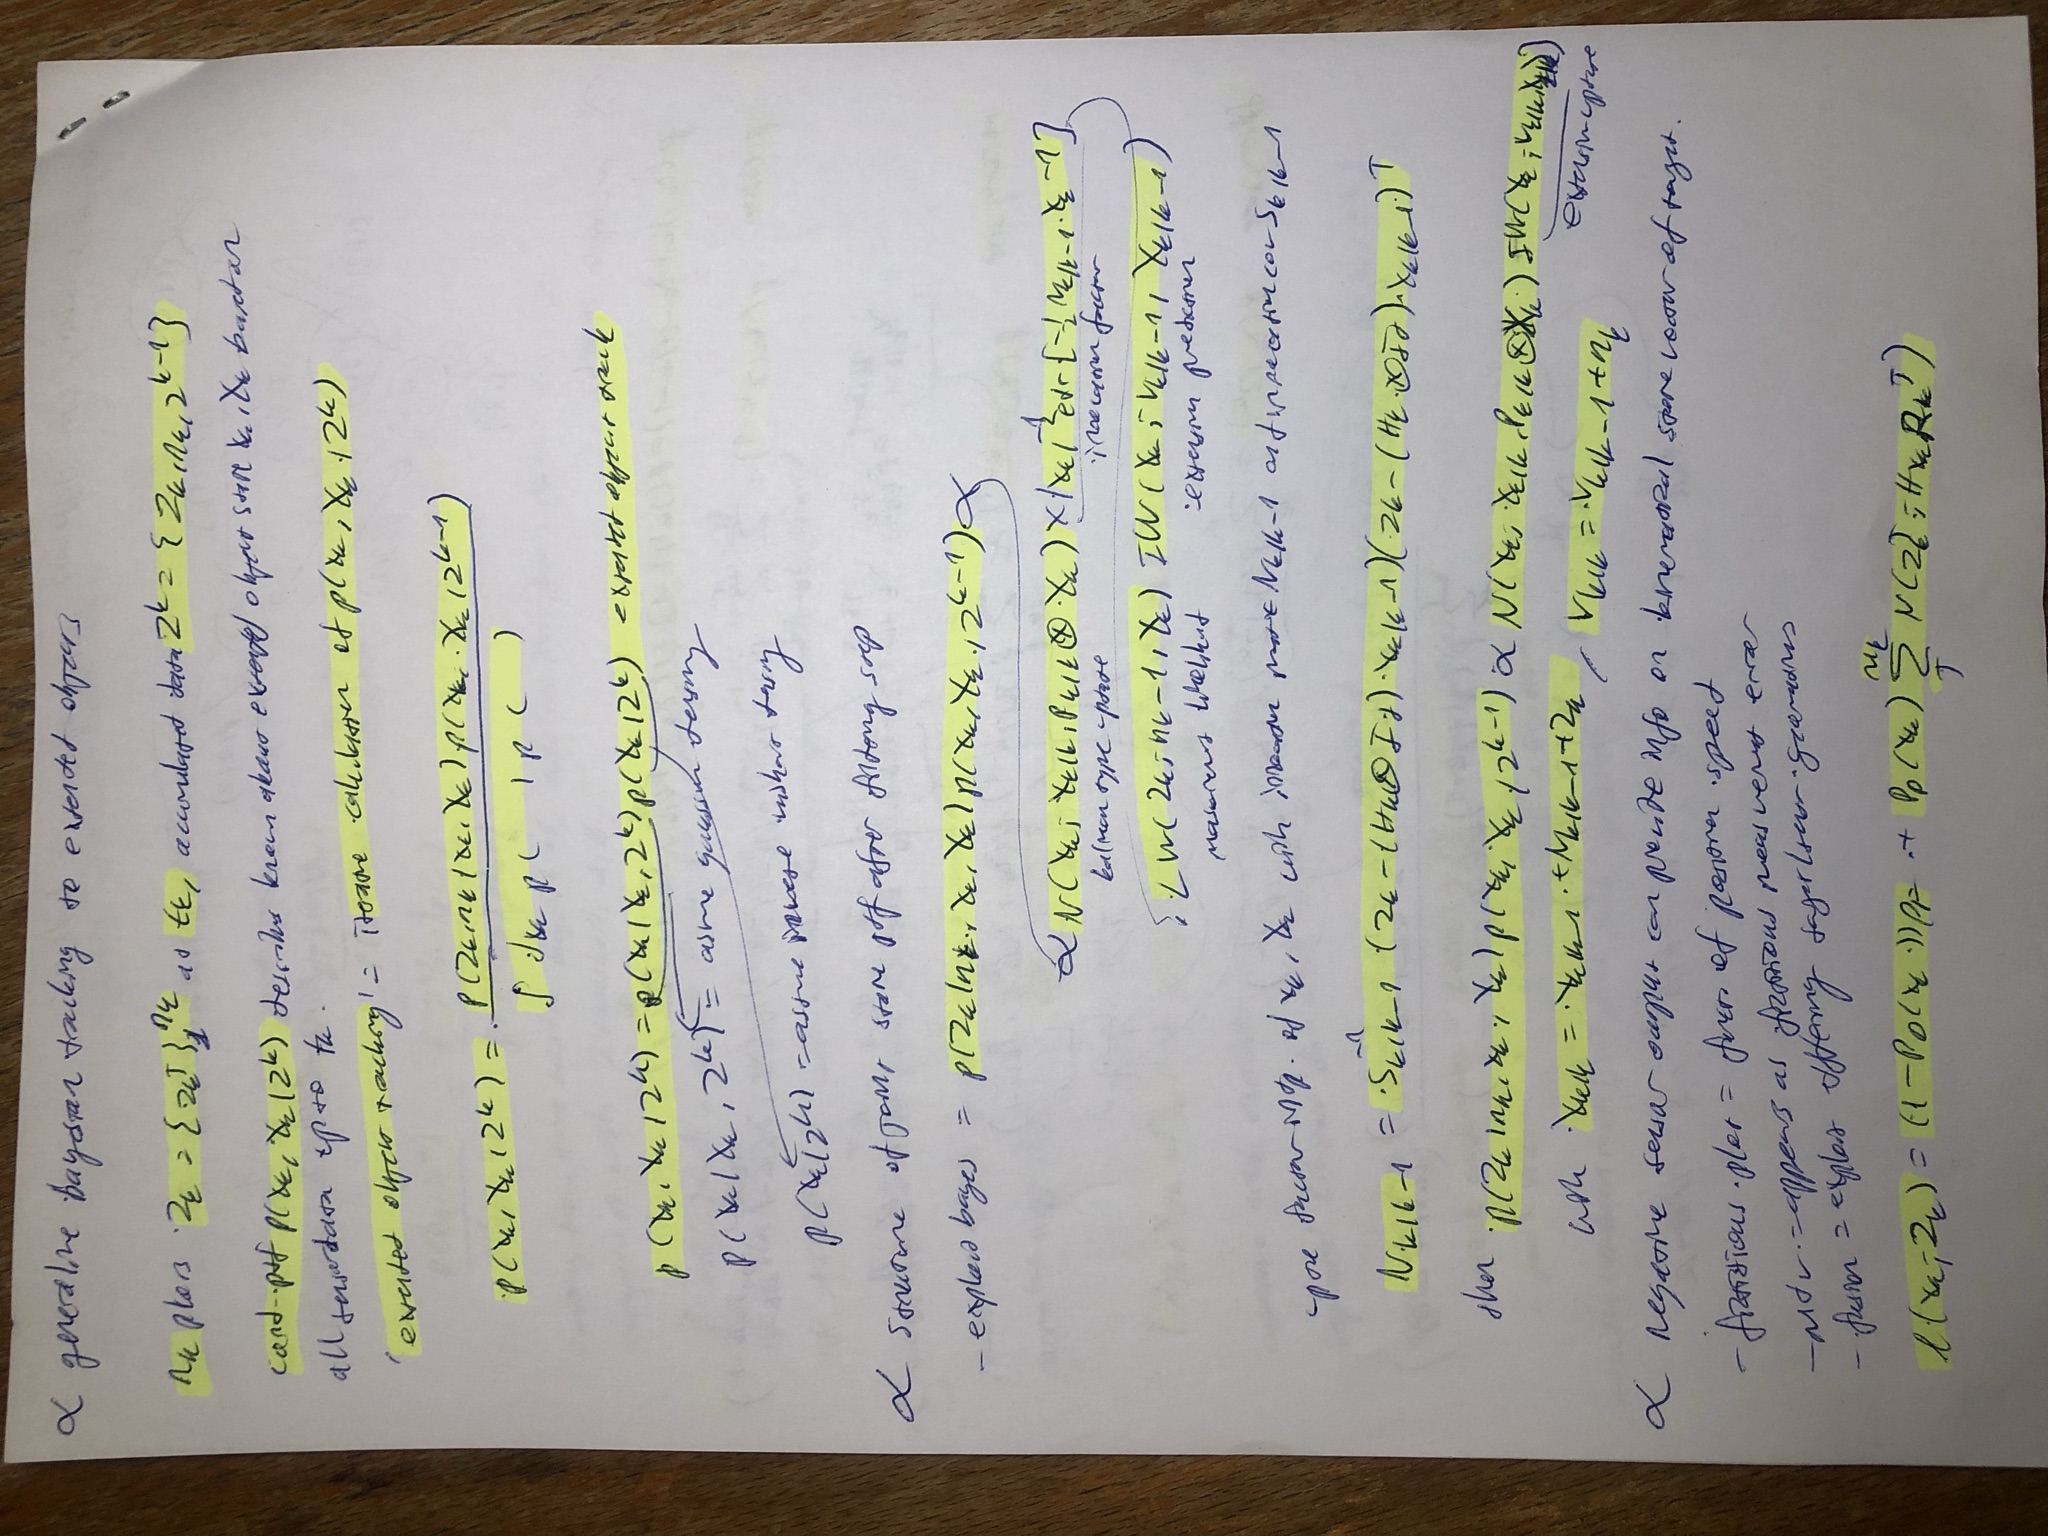 ∝ generalize bayesian tracking to extended objects
n_k plots Z_k = {z_k^j}_1^{n_k} at t_k, accumulated data Z^k = {Z_k, n_k, Z^{k-1}}
cond. pdf p(x_k, X_k | Z^k) describes known about extend object state x_k, X_k based on
all sensordata up to t_k.
'extended object tracking' = iterative calculation of p(x_k, X_k | Z^k)
p(x_k, X_k | Z^k) = p(Z_k, n_k | x_k, X_k) p(x_k, X_k | Z^{k-1})
∫ dx_k p( | p( )
p(x_k, X_k | Z^k) = p(x_k | X_k, Z^k) p(X_k | Z^k) extended object track
p(x_k | X_k, Z^k) = assume gaussian density
p(X_k | Z^k) = assume inverse wishart density
∝ structure of joint state pdf after filtering step
- exploit bayes = p(Z_k | n_k, x_k, X_k) p(x_k, X_k, | Z^{k-1}) ∝
∝ N(x_k; x_{k|k}, P_{k|k} ⊗ X_k) × |X_k|^{-1/2} etr[-½ N_{k|k-1} X_k^{-1}]
kalman type update : innovation factor
; LW(Z_k; n_k-1, X_k) IW(X_k; ν_{k|k-1}, X_{k|k-1})
measurement likelihood : extension prediction
N_{k|k-1} = S_{k|k-1}^{-1} (z_k - (H_k ⊗ I_d) x_{k|k-1}) (z_k - (H_k ⊗ I_d) x_{k|k-1})^T
then p(Z_k | n_k, x_k, X_k) p(x_k, X_k, | Z^{k-1}) ∝ N(x_k; x_{k|k}, P_{k|k} ⊗ X_k) IW(X_k; ν_{k|k}, X_{k|k})
extension update
with X_{k|k} = X_{k|k-1} + N_{k|k-1} + Z_k, ν_{k|k} = ν_{k|k-1} + n_k
∝ negative sensor output can provide info on kinematical state vector of target.
- fictitious plot = funct of position, speed
- mdv = appears as fictitious measurement error
- fusion = exploit differing target/sensor geometries
l(x_k; Z_k) = (1 - P_D(x_k)) p_F + P_D(x_k) Σ_j^{m_k} N(z_k^j; H x_k, R_k^j)